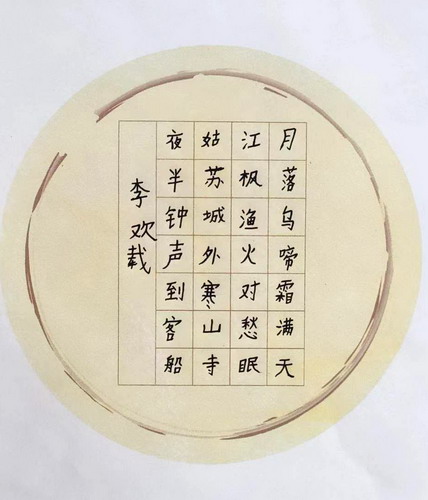 月落乌啼霜满天
江枫渔火对愁眠
姑苏城外寒山寺
夜半钟声到客船
李欢载